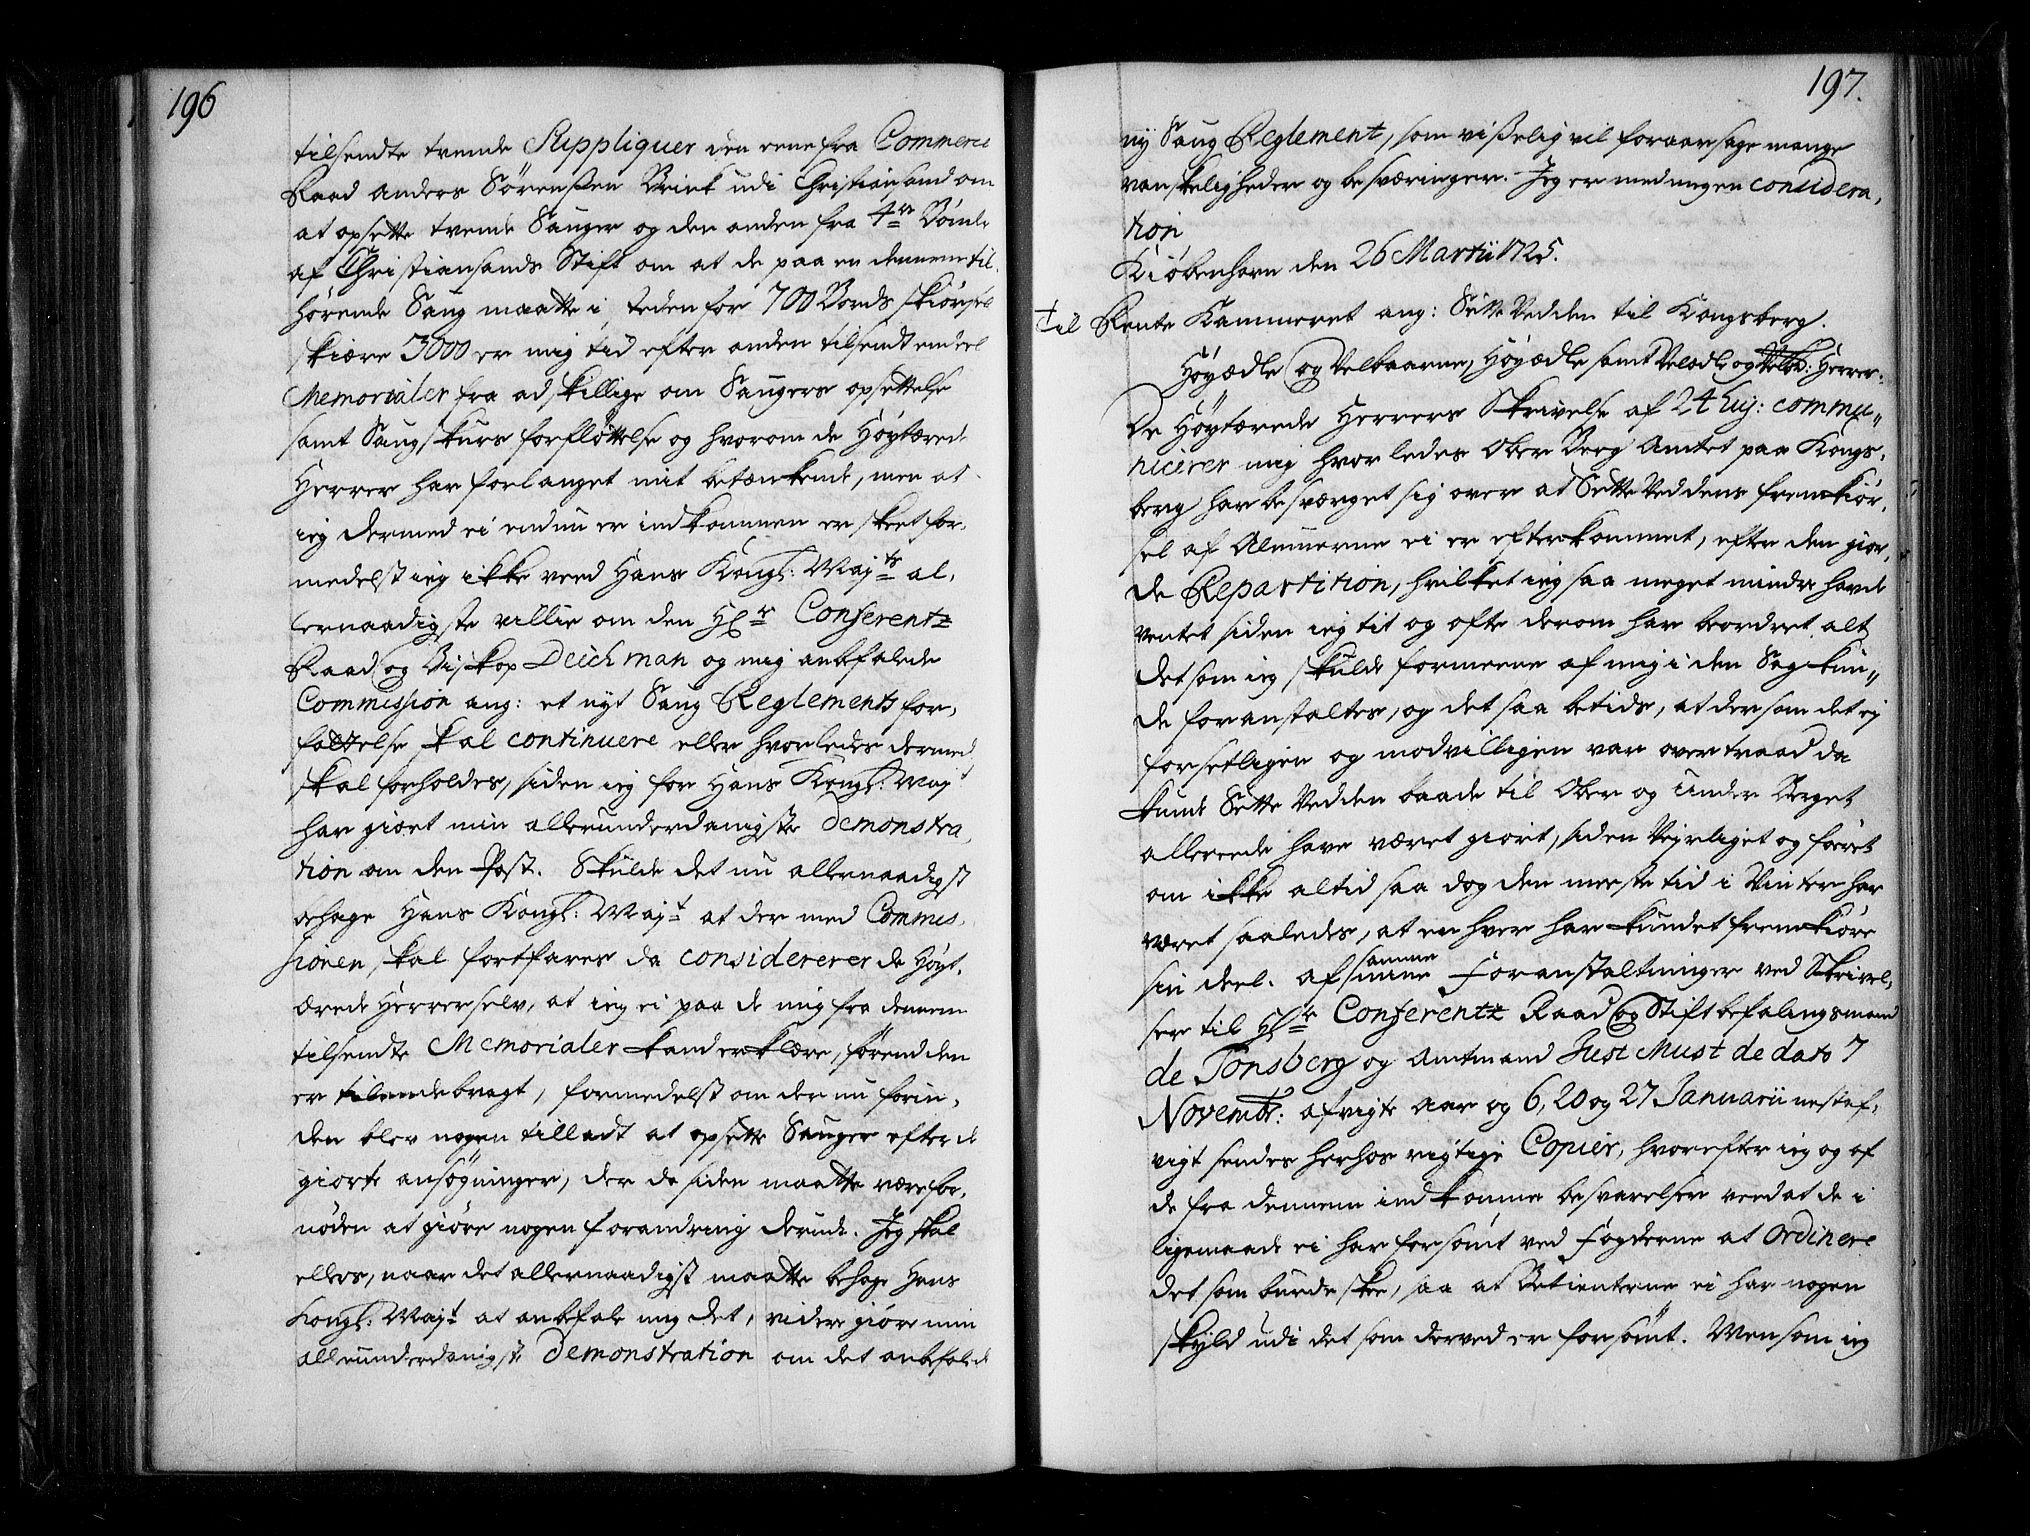 196
tilsendte tvende Suppliquer den eene fra Commerce
Raad Anders Sørensen Brink udi Christiansand om
at opsette tvende Sauger og den anden fra 4re Bønder
af Christiansands Stift om at de paa en dennem til,
hørende Saug maatte i steden for 700 Bords skiørsel
skiære 3000 er mig tid efter anden tilsendt endeel
Memorialer fra adskillige om Saugers opsettelse
samt Saugskurs forfløttelse og hvorom de Høytærede
Herrer har forlanget mit betænkende, men at
ieg dermed ei endnu er indkommen er skeet for,
medelst ieg ikke veed Hans Kongl: Majts al,
lernaadigste villie om den Hr Conferentz
Raad og Biskop Deichman og mig anbefalede
Commission ang: et nyt Saug Reglements for,
fattelse skal continuere eller hvorledes dermed
skal forholdes, siden ieg for Hans Kongl: Majt
har giort min allerunderdanigste demonstra,
tion om den Post. Skulde det nu allernaadigst
behage Hans Kongl: Majt at der med Commis,
sionen skal fortfares da considererer de Høyt,
ærede Herrer selv, at ieg ei paa de mig fra dennem
tilsendte Memorialer kand erklære, førend den
er tilendebragt, formedelst om der nu forin,
den blev nogen tilladt at opsette Sauger efter de
giorte ansøgninger, der da siden maatte være for,
nøden at giøre nogen forandring derudi. Jeg skal
ellers, naar det allernaadigst maatte behage Hans
Kongl: Majt at anbefale mig det, videre giøre min
allerunderdanigste demonstration om det anbefalede
197.
ny Saug Reglement, som visselig vil foraarsage mange
vanskeligheder og besværinger. Jeg er med megen considera,
tion
Kiøbenhavn den 26 Martii 1725.
Til Rente Kammeret ang: Sette Vedden til Kongsberg.
Høyædle og Velbaarne, Høyædle samt Velædle og Velbr: Herrer.
De Høytærede Herrers Skrivelse af 24 huj: commu,,
nicerer mig hvorledes Ober Berg Amtet paa Kongs,
berg har besværget sig over at Sette Veddens fremkiør,
sel af Almuerne ei er efterkommet, efter den gior,
de Repartition, hvilket ieg saa meget mindre havde
ventet siden ieg tit og ofte derom har beordret alt
det som ieg skulde formeene af mig i den Sag kun,,
de foranstaltes, og det saa betids, at dersom det ej
forsetligen og modvilligen var overtraad da
kunde Sette Vedden baade til Ober og Under Berget
allereede have været giort, siden Vejerliget og føret
om ikke altid saa dog den meeste tid i Vinter har
været saaledes, at en hver har kundet fremkiøre
sin deel. af samme mine Foranstaltninger ved Skrivel,
ser til Hr Conferentz Raad og Stiftbefalingsmand
de Tonsberg og Amtmand Just Must de dato 7
Novembr: afvigte Aar og 6, 20 og 27 Januarii nestaf,
vigt sendes herhos rigtige Copier, hvorefter ieg og af
de fra dennem indkomne besvarelser veed at de i
ligemaade ei har forsømt ved Fogderne at Ordinere
det som burde skee, saa at Betienterne ei har nogen
skyld udi det som derved er forsømt. Men som ieg